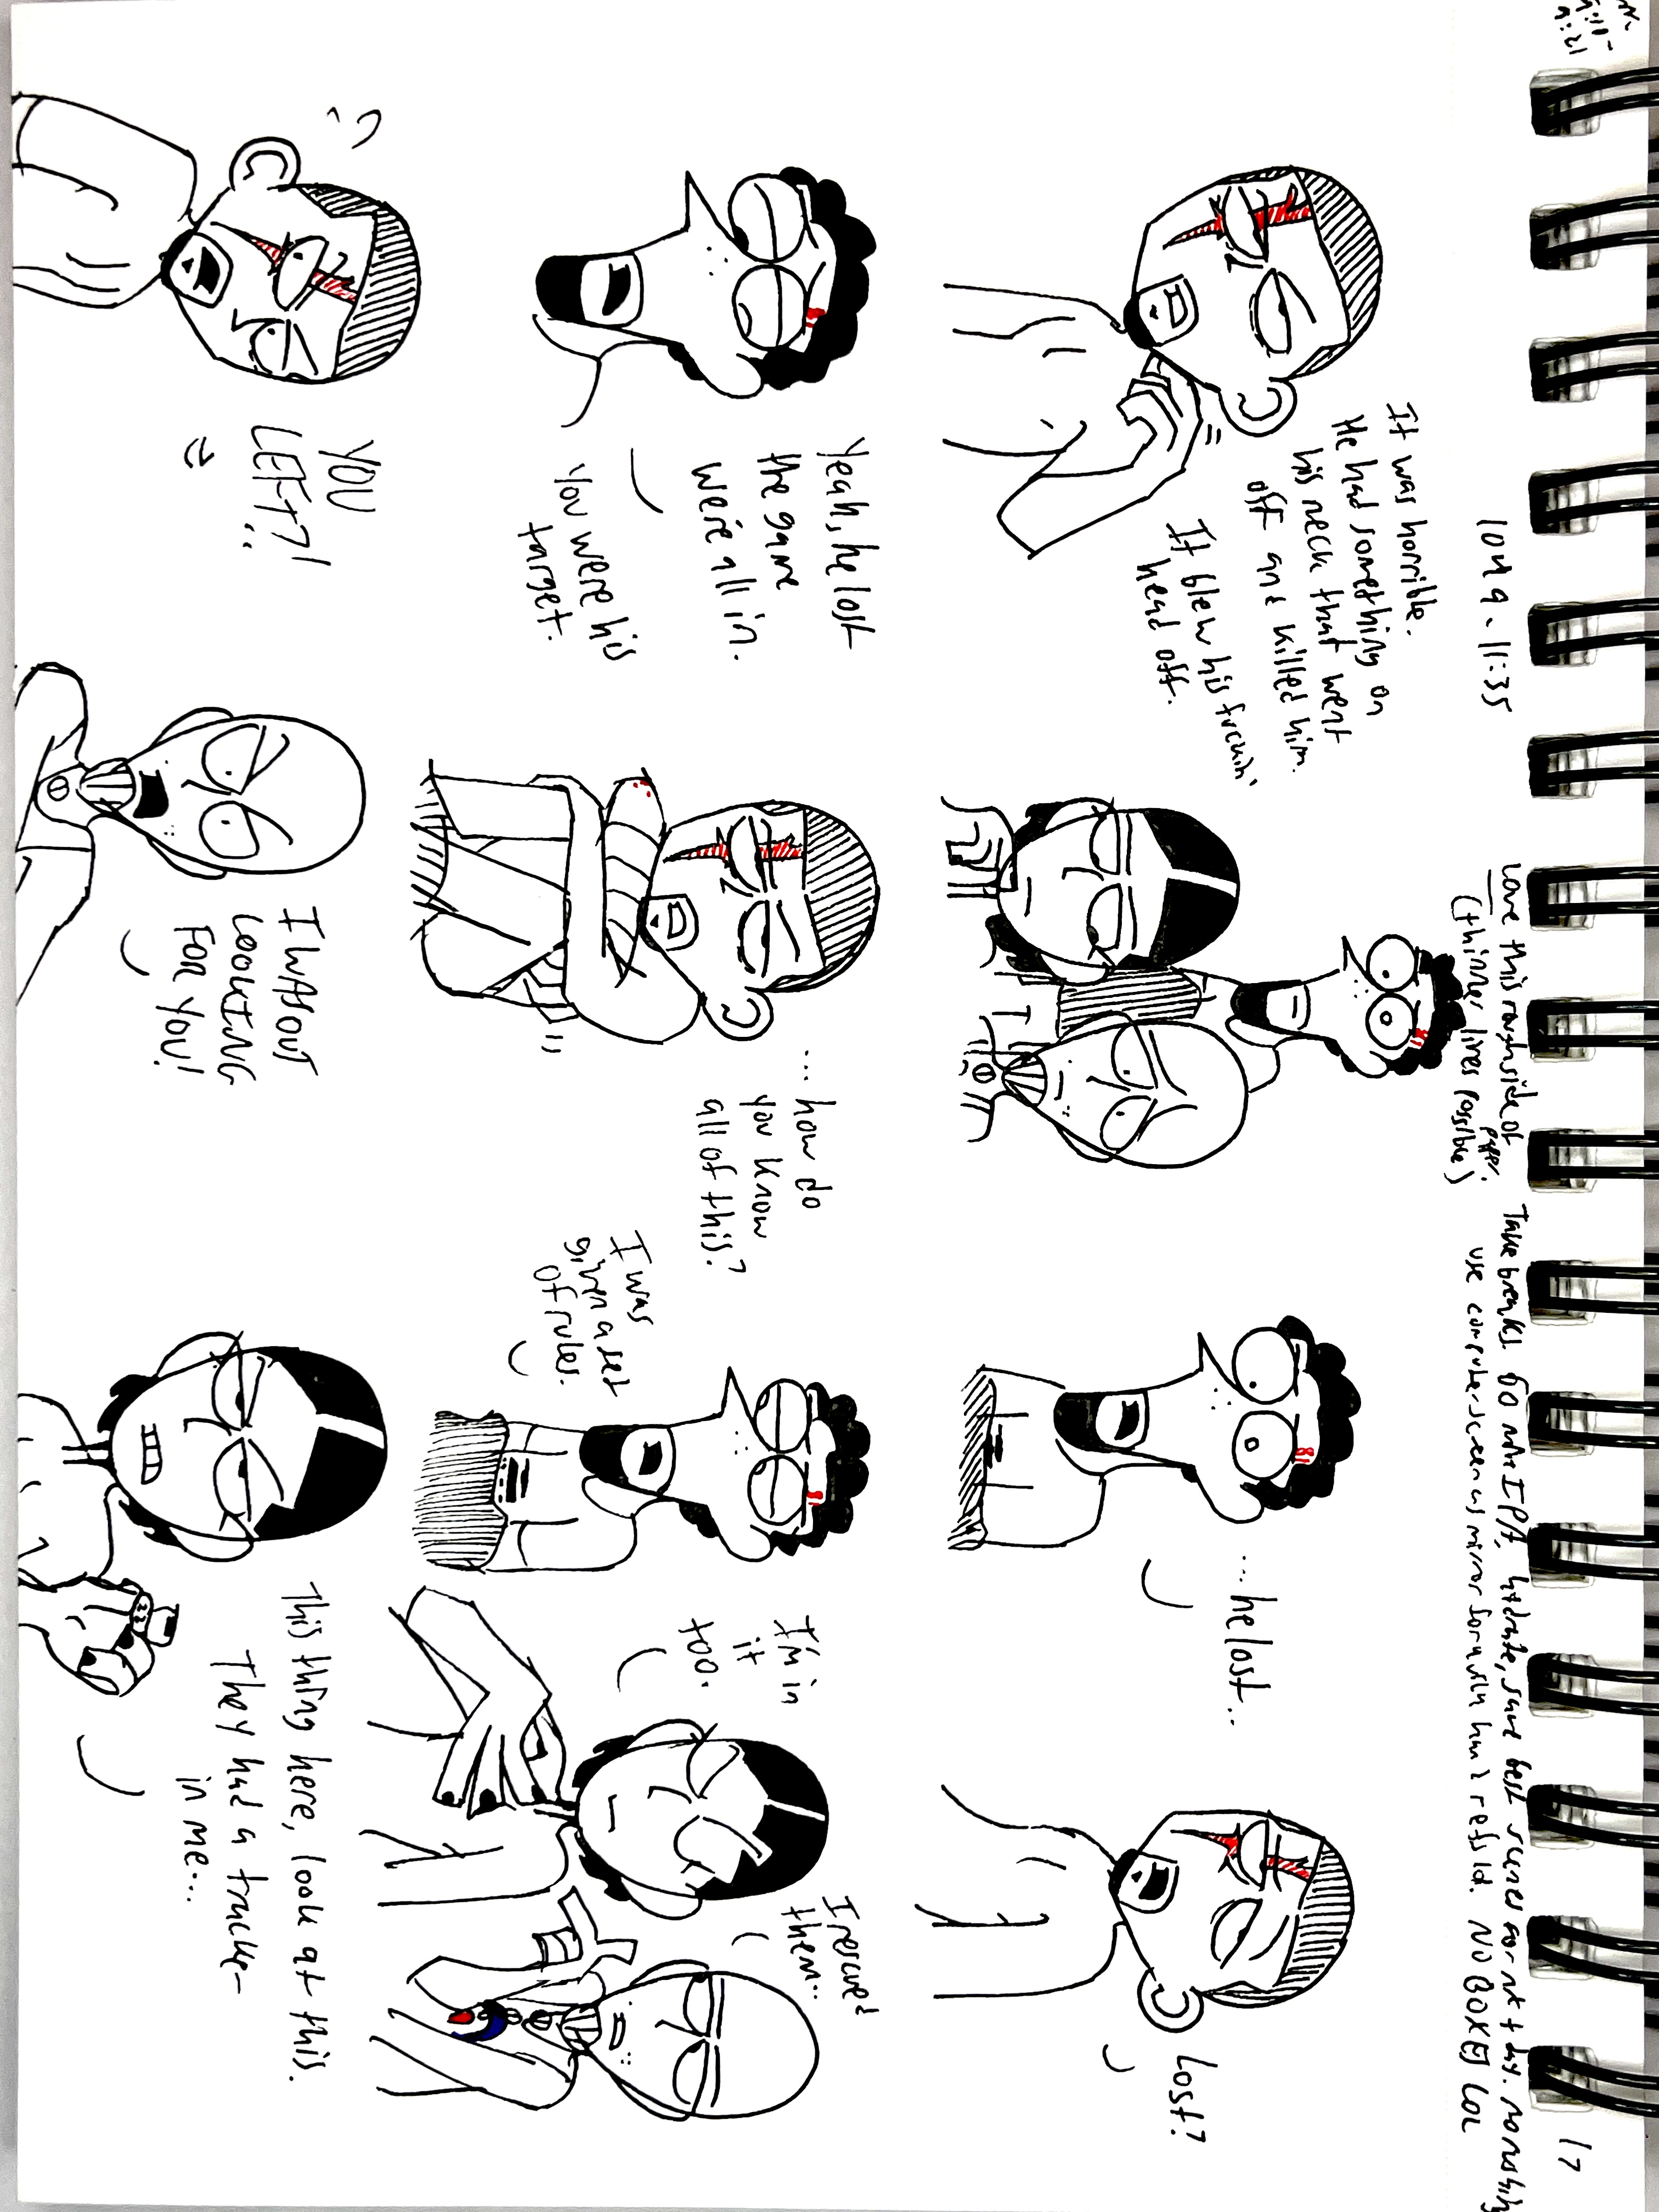 9:10-
9:21
17
1049.11:35
Love this rough side of
paper.
(thinner lines possible)
Take breaks. 60 min IPA, hydrate, save best scenes for nxt day. no rushing
use computer screen as mirror for when hand refs lol. NO BOXES LOL
It was horrible.
He had something on
his neck that went
off and killed him.
It blew his fuckin'
head off.
...he lost..
Lost?
Yeah, he lost
the game
we're all in.
You were his
target.
... how do
you know
all of this?
I was
given a set
of rules.
I'm in
it
too.
I rescued
them..
YOU
LEFT?!
I WAS OUT
LOOKING
FOR YOU!
This thing here, look at this.
They had a tracker
in me...
22